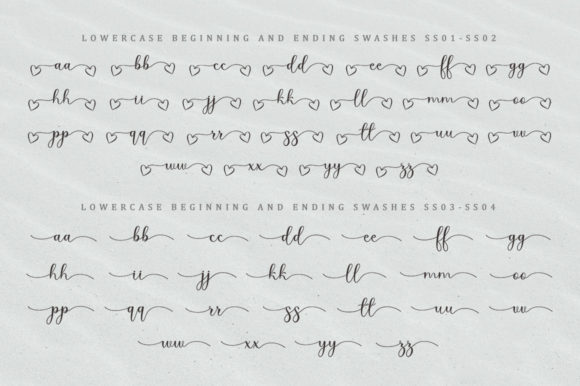 LOWERCASE BEGINNING AND ENDING SWASHES SS01-SS02
aa bb cc dd ee ff gg
hh ii jj kk ll mm oo
pp qq rr ss tt uu vv
ww xx yy zz
LOWERCASE BEGINNING AND ENDING SWASHES SS03-SS04
aa bb cc dd ee ff gg
hh ii jj kk ll mm oo
pp qq rr ss tt uu vv
ww xx yy zz